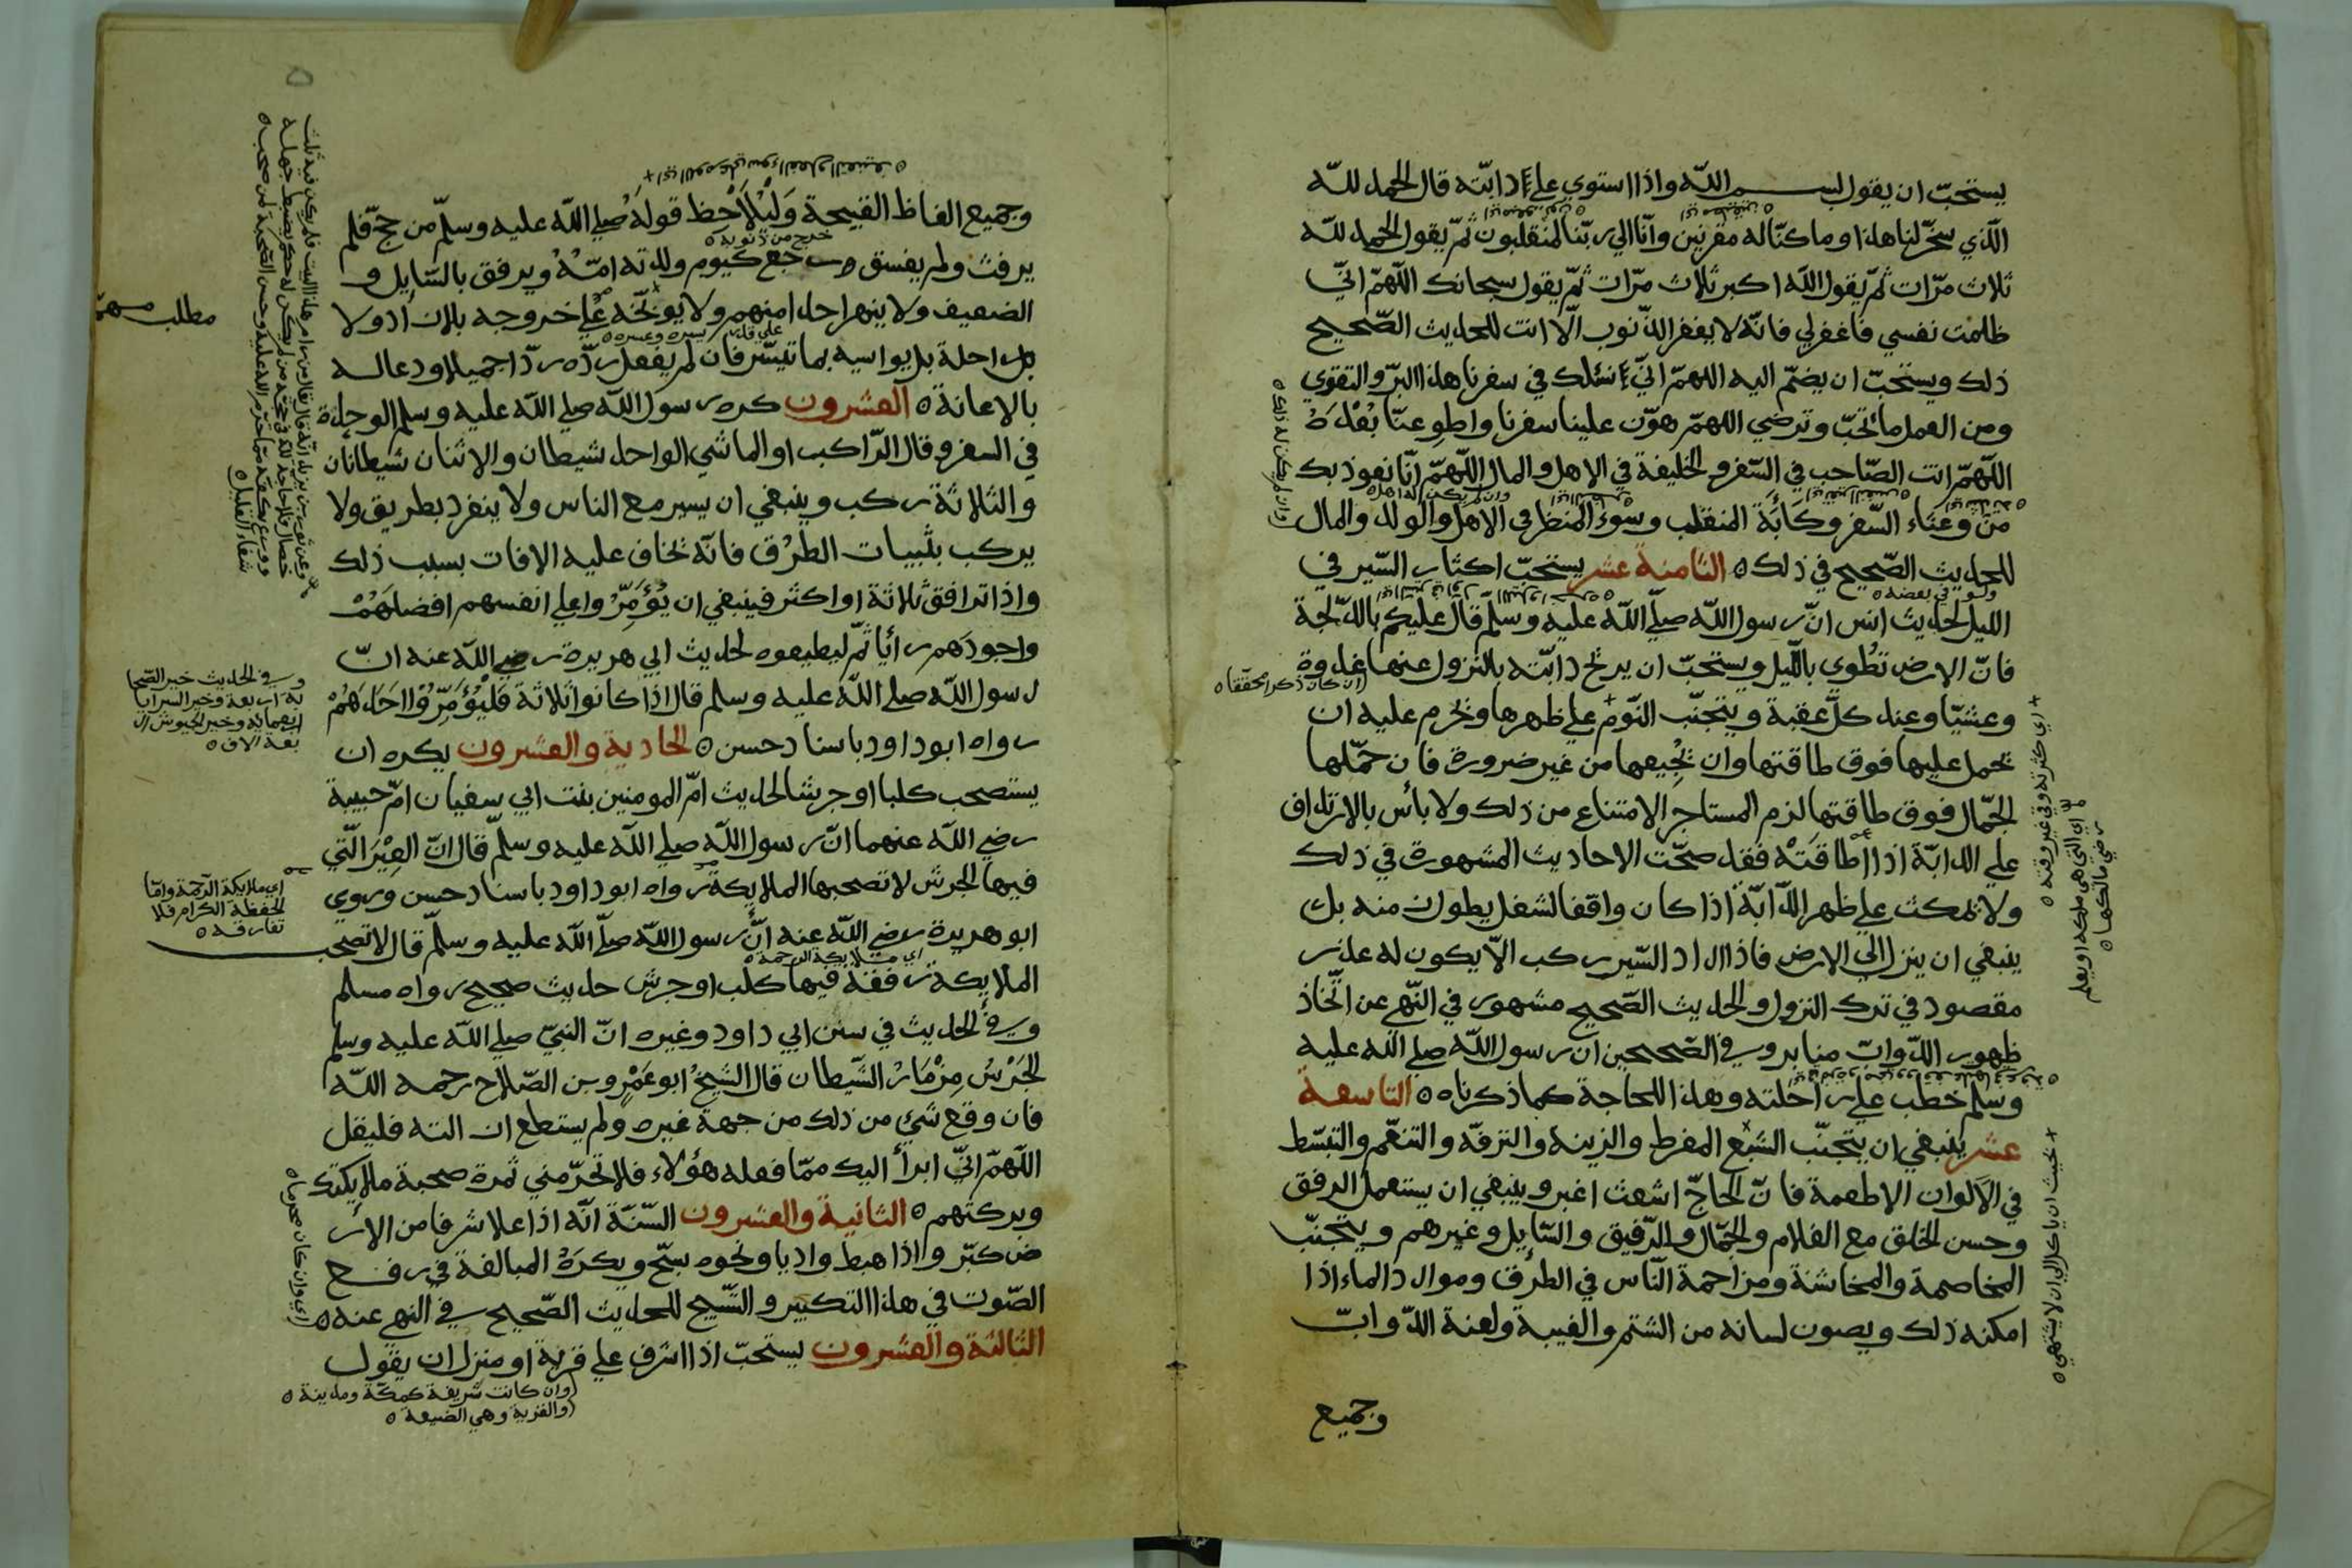 يستحبّ ان يقول بسم اللّه واذا استوي علي دابّته قال الحمد للّه
الّذي سخّر لنا هذا وما كنّا له مقرنين وانّا الي ربّنا لمنقلبون ثمّ يقول الحمد للّه
ثلاث مرّات ثمّ يقول اللّه اكبر ثلاث مرّات ثمّ يقول سبحانك اللّهمّ انّي
ظلمت نفسي فاغفرلي فانّه لا يغفر الذّنوب الّا انت للحديث الصّحيح
ذلك ويستحبّ ان يضمّ اليه اللهمّ انّي نسئلك في سفرنا هذا البرّ والتقوي
ومن العمل ما تحبّ وترضي اللهمّ هوّن علينا سفرنا واطو عنّا بعده
اللّهمّ انت الصّاحب في السّفر والخليفة في الاهل والمال اللّهمّ انّا نعوذ بك
من وعثاء السّفر وكابة المنقلب وسوء المنظر في الاهل والولد والمال
للحديث الصّحيح في ذلك ه الثامنة عشر يستحبّ اكثار السّير في
ولو في بعضه ه
الليل لحديث انس انّ رسول اللّه صلّي اللّه عليه وسلّم قال عليكم بالدّلجة
فانّ الارض تطوي باللّيل ويستحبّ ان يريح دابّته بالنزول عنها غدوة
وعشيّا وعند كلّ عقبة ويتجنّب النّوم علي ظهرها ويحرم عليه ان
يحمل عليها فوق طاقتها وان يجيعها من غير ضرورة فان حمّلها
الجمّال فوق طاقتها لزم المستاجر الامتناع من ذلك ولا بأس بالارتداف
علي الدابّة اذا اطاقته فقد صحّت الاحاديث المشهورة في ذلك
ولا يمكث علي ظهر الدّابّة اذا كان واقفا لشغل يطول منه بل
ينبغي ان ينزل الي الارض فاذا اراد السّير ركب الّا يكون له عذر
مقصود في ترك النزول والحديث الصّحيح مشهور في النّهي عن اتّخاذ
ظهور الدّوابّ منابر وفي الصّحيحين ان رسول اللّه صلي اللّه عليه
وسلم خطب علي راحلته وهذا للحاجة كما ذكرناه ه التاسعة
عشر ينبغي ان يتجنّب الشّبع المفرط والزينة والترفّه والتنعّم والتبسّط
في الالوان الاطعمة فانّ الحاجّ اشعث اغبر وينبغي ان يستعمل الرفق
وحسن الخلق مع الغلام والجمّال والرّفيق والسّايل وغيرهم ويتجنّب
المخاصمة والمخاشنة ومزاحمة النّاس في الطرق وموارد الماء اذا
امكنه ذلك ويصون لسانه من الشتم والغيبة ولعنة الدّوابّ
وجميع
(ان كان ذكرا محقّقا ه
+ اي كثرته وفي غير وقته ه
اي التي هي ملكه او يعلم
رضي مالكها ه
+ بحيث ان ياكل الي ان لا يشتهي ه
وجميع الفاظ القبيحة وليلاحظ قوله صلي اللّه عليه وسلّم من حجّ فلم
خرج من ذنوبه ه
يرفث ولم يفسق رجع كيوم ولدته امّه ويرفق بالسّايل و
الضعيف ولا ينهر احدا منهم ولا يوبّخه علي خروجه بلا زاد ولا
راحلة بل يواسيه بما تيسّر فان لم يفعل ردّه ردّا جميلا ودعا له
بالاعانة ه العشرون كره رسول اللّه صلي اللّه عليه وسلم الوحدة
في السفر وقال الرّاكب او الماشي الواحد شيطان والاثنان شيطانان
والثلاثة ركب وينبغي ان يسير مع الناس ولا ينفرد بطريق ولا
يركب بثنيات الطرق فانّه يخاف عليه الافات بسبب ذلك
واذا ترافق ثلاثة او اكثر فينبغي ان يؤمّروا علي انفسهم افضلهم
واجودهم رأيا ثمّ ليطيعوه لحديث ابي هريرة رضي اللّه عنه انّ
رسول اللّه صلي اللّه عليه وسلم قال اذا كانوا ثلاثة فليؤمّروا احدهم
رواه ابو داود باسناد حسن ه الحادية والعشرون يكره ان
يستصحب كلبا او جرسا لحديث امّ المومنين بنت ابي سفيان امّ حبيبة
رضي اللّه عنهما انّ رسول اللّه صلي اللّه عليه وسلّم قال انّ العير الّتي
فيها الجرس لا تصحبها الملايكة رواه ابو داود باسناد حسن وروي
ابو هريرة رضي اللّه عنه انّ رسول اللّه صلّي اللّه عليه وسلّم قال لا تصحب
اي ملايكة الرحمة ه
الملايكة رفقة فيها كلب او جرس حديث صحيح رواه مسلم
وفي الحديث في سنن ابي داود وغيره انّ النبيّ صلي اللّه عليه وسلم
الجرس مزمار الشّيطان قال الشّيخ ابو عمرو بن الصّلاح رحمه اللّه
فان وقع شيء من ذلك من جهة غيره ولم يستطع ازالته فليقل
اللّهمّ انّي ابرأ اليك ممّا فعله هؤلاء فلا تحرّمني ثمرة صحبة ملايكتك
وبركتهم ه الثانية والعشرون السّنّة انّه اذا علا شرفا من الار
ض كبّر واذا هبط واديا ونحوه سبّح ويكره المبالغة في رفع
الصّوت في هذا التكبير والتّسبيح للحديث الصّحيح في النهي عنه ه
الثالثة والعشرون يستحبّ اذا اشرف علي قرية او منزل ان يقول
(وان كانت شريفة كمكّة ومدينة ه
(والقرية وهي الضيعة ه
مطلب مهمّ
وفي الحديث خير الصّحا
بة اربعة وخير السرايا
اربعماية وخير الجيوش ار
بعة الاف ه
اي ملايكة الرّحمة وامّا
الحفظة الكرام فلا
تفارقه ه
(اي وان كان محرما ه